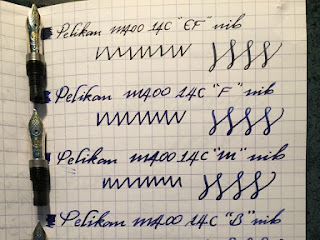 Pelikan m400 14C "EF" nib
Pelikan m400 14C "F" nib
Pelikan m400 14C "M" nib
Pelikan m400 14C "B" nib